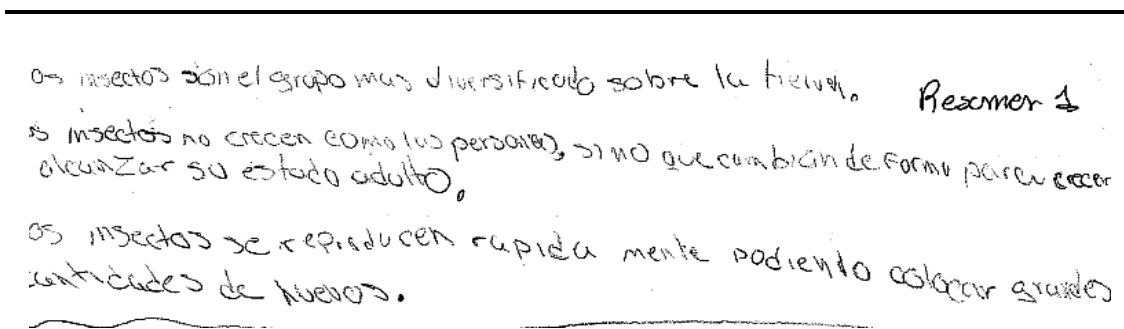 os insectos son el grupo mas diversificado sobre la tierra.
Resumen 1
s insectos no crecen como las personas, si no que cambian de forma para crecer
alcanzar su estado adulto.
os insectos se reproducen rapida mente podiendo colocar grandes
cantidades de huevos.